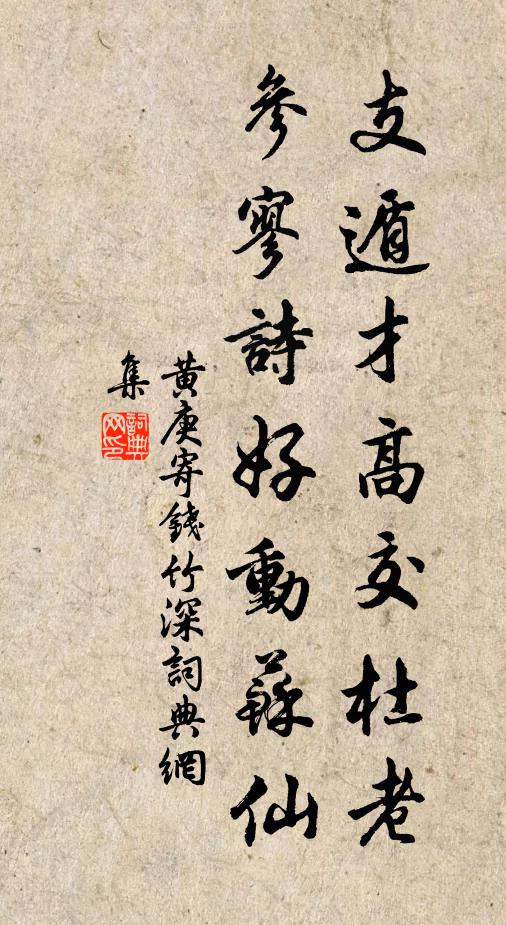 支遁才高交杜老
參寥詩好動蘇仙
黃庚寄錢竹深詞典網
集
詞典網印